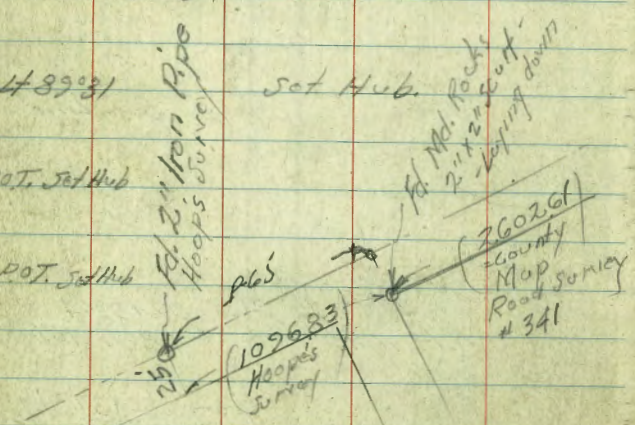 Lt 89°31
Set Hub.
O.T. Set Hub
P.O.T. Set Hub
Fd. 2" Iron Pipe
Hoop's Survey
Fd. Md. Rocks
2" x 2"
- Laying down
.65
25
(1096.83)
Hoop's
Survey
(2602.61)
=County
Map
Road Survey
# 341